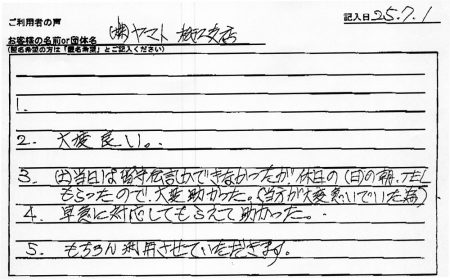 ご利用者の声
記入日 25.7.1
お客様の名前or団体名 (株)ヤマト 支店
(匿名希望の方は「匿名希望」とご記入ください)
1.
2. 大変良い。
3. (土)当日は留守伝言しかできなかったが休日の(日)の朝、TEL
もらったので、大変助かった。(当方が大変急いでいた為)
4. 早急に対応してもらえて助かった。
5. もちろん利用させていただきます。